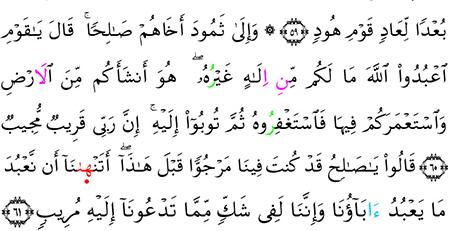 بُعْدًا لِّعَادٍ قَوْمِ هُودٍ ﴿٥٩﴾ ۞ وَإِلَىٰ ثَمُودَ أَخَاهُمْ صَـٰلِحًا ۚ قَالَ يَـٰقَوْمِ
اَ۟عْبُدُوا۟ اَ۟للَّهَ مَا لَكُم مِّنِ اِلَـٰهٍ غَيْرُهُۥ ۖ هُوَ أَنشَأَكُم مِّنَ اَ۬لَارْضِ
وَاسْتَعْمَرَكُمْ فِيهَا فَاسْتَغْفِرُوهُ ثُمَّ تُوبُوٓا۟ إِلَيْهِ ۚ إِنَّ رَبِّى قَرِيبٌ مُّجِيبٌ
﴿٦٠﴾ قَالُوا۟ يَـٰصَـٰلِحُ قَدْ كُنتَ فِينَا مَرْجُوًّا قَبْلَ هَـٰذَآ ۖ أَتَنْهَـٰنَآ أَن نَّعْبُدَ
مَا يَعْبُدُ ءَابَآؤُنَا وَإِنَّنَا لَفِى شَكٍّ مِّمَّا تَدْعُونَآ إِلَيْهِ مُرِيبٍ ﴿٦١﴾